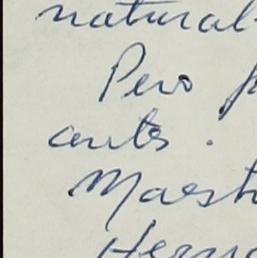 natural
Pero
antes.
Maest
Hern